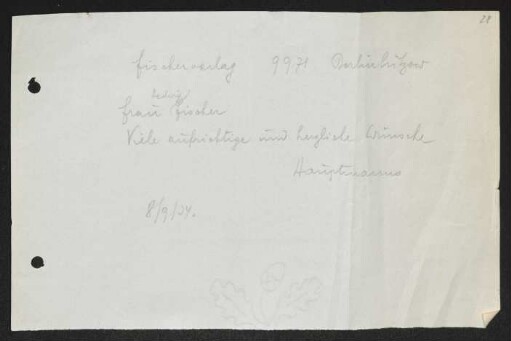 28
Fischerverlag 9971 Berlinlützow
Hedwig
Frau Fischer
Viele aufrichtige und herzliche Wünsche
Hauptmanns
8/9/34.